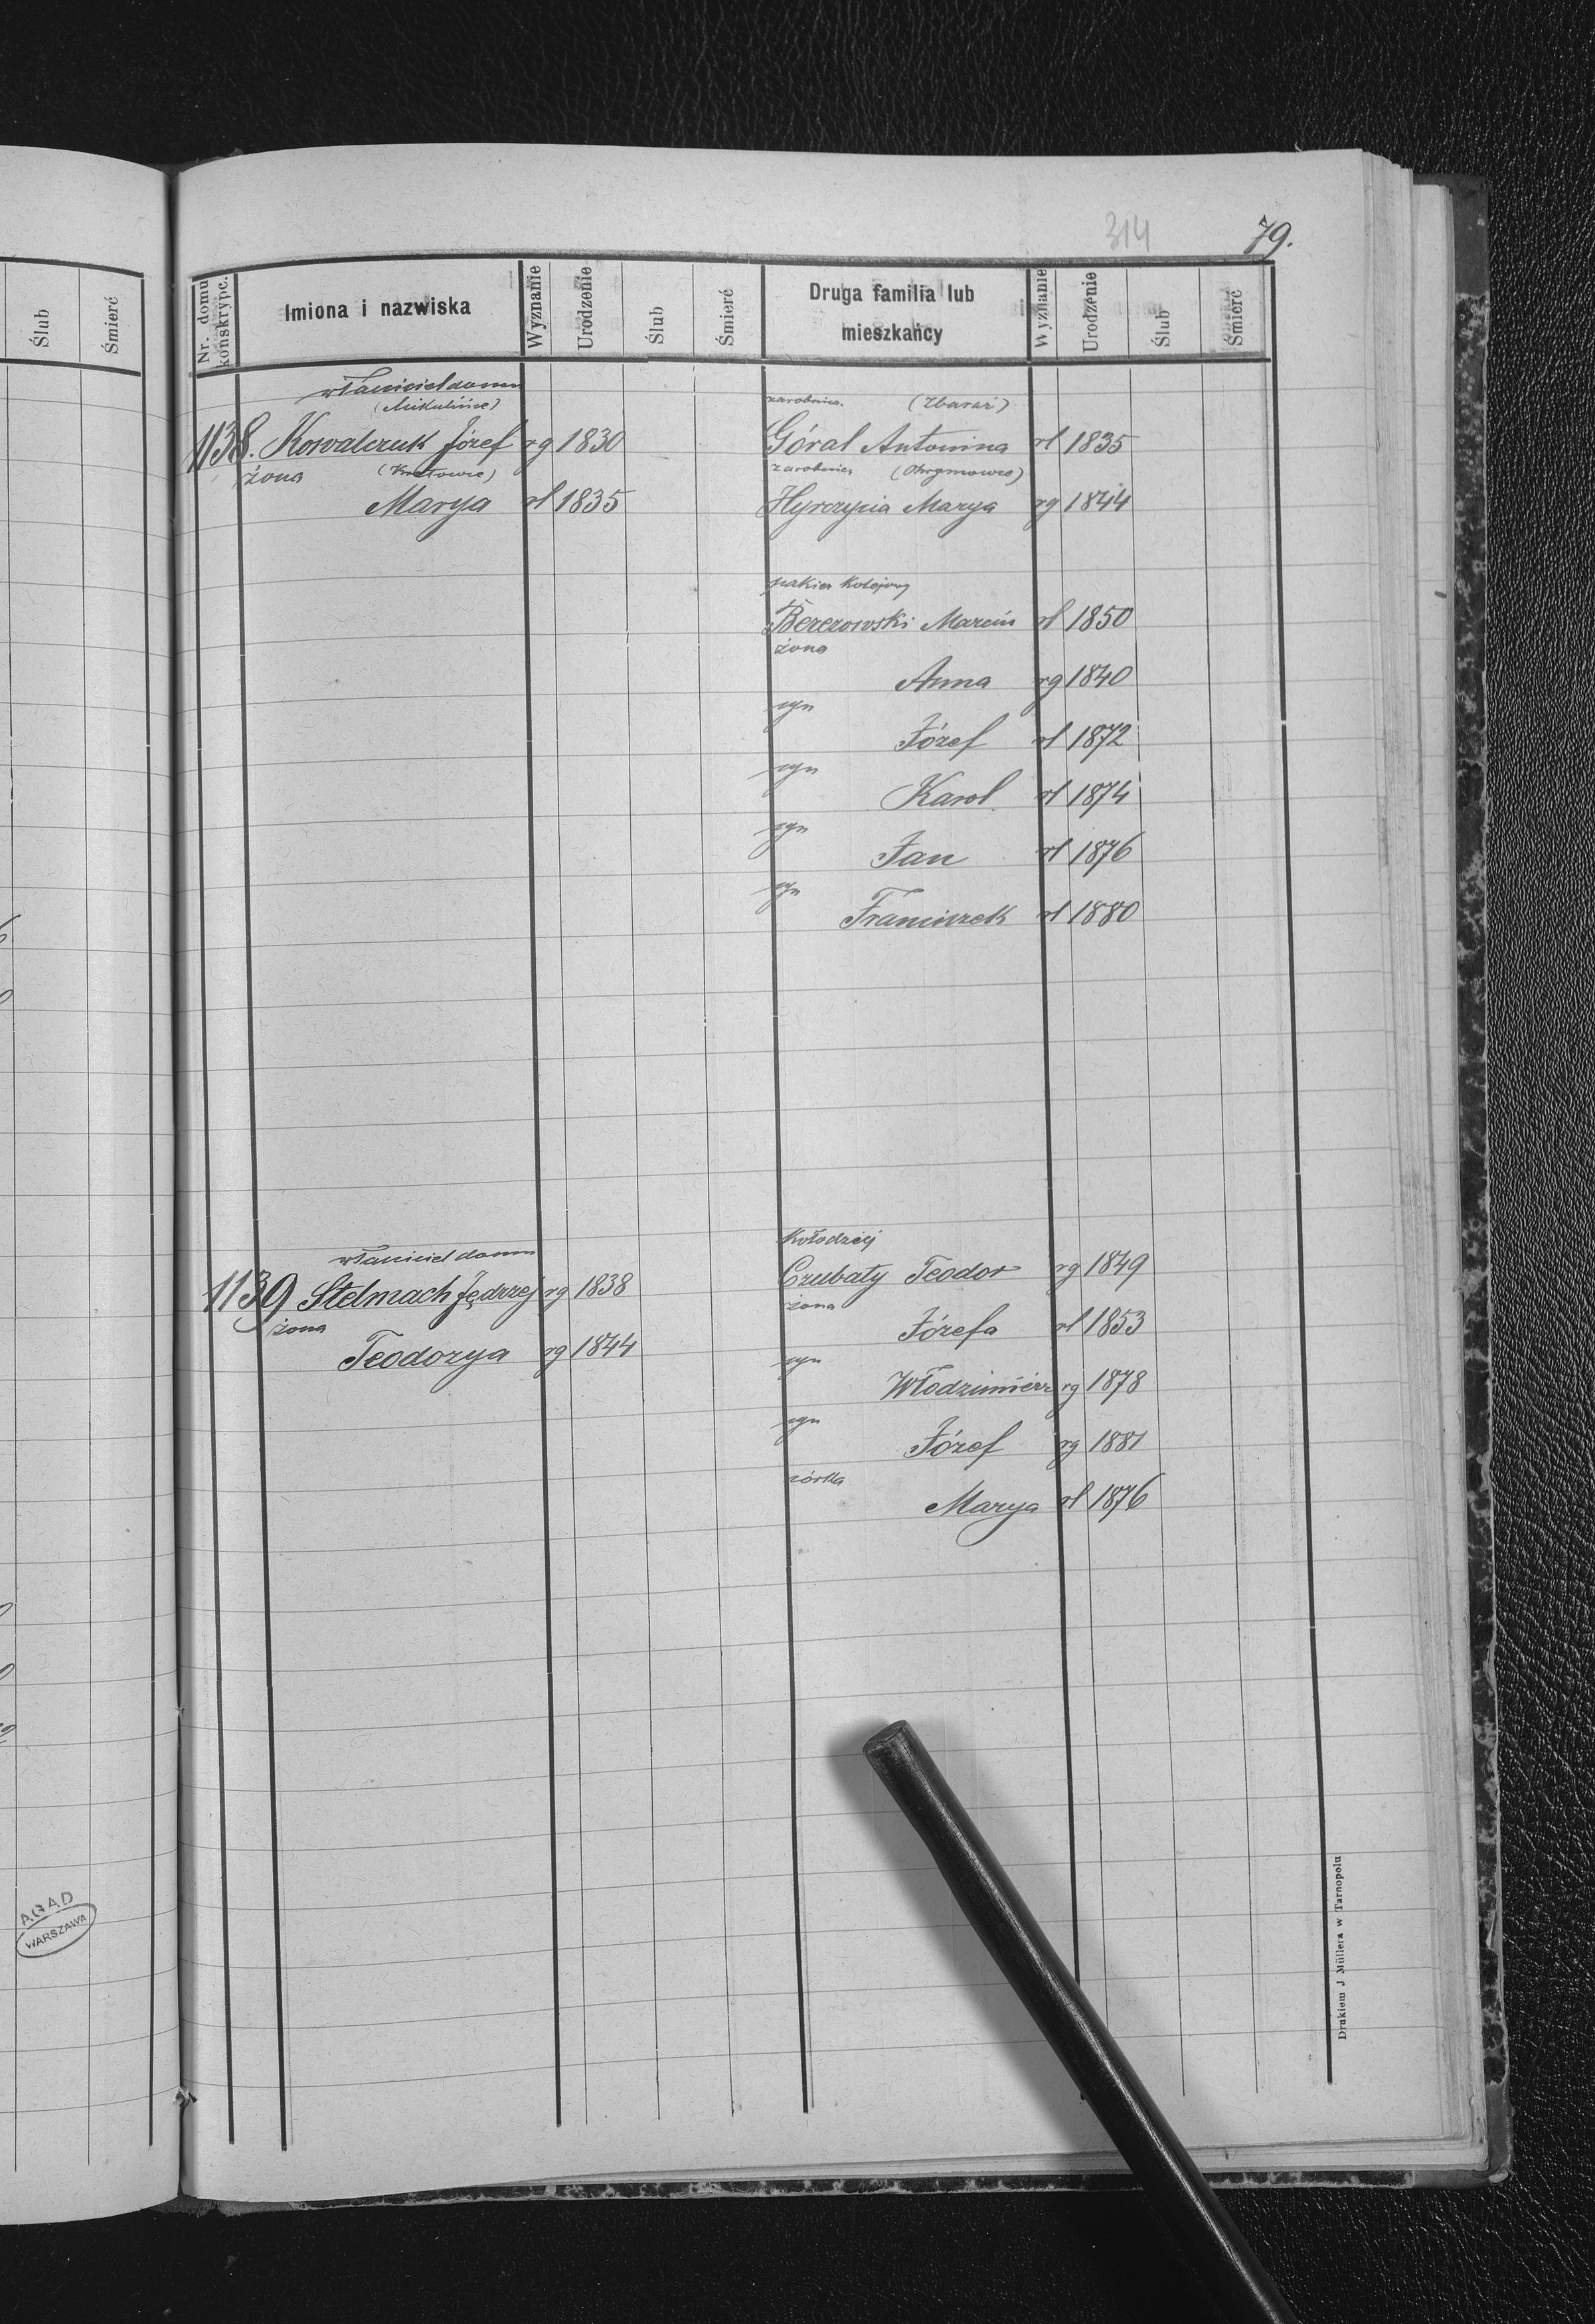 314
79.
Ślub
Śmierć
Nr. domu konskrypc.
Imiona i nazwiska
Wyznanie
Urodzenie
Ślub
Śmierć
Druga familia lub
mieszkańcy
Wyznanie
Urodzenie
Ślub
Śmierć
właściciel domu
(Mikulińce)
1138. Kowalczuk Józef rg 1830
żona (Kretowce)
Marya rl 1835
zarobnica. (Zbaraż)
Góral Antonina rl 1835
zarobnica (Ohrymowce)
Hyrczycia Marya rg 1844
pakier kolejowy
Berezowski Marcin rl 1850
żona
Anna rg 1840
syn
Józef rl 1872
syn
Karol rl 1874
syn
Jan rl 1876
syn
Franciszek rl 1880
właściciel domu
1139 Stelmach Jędrzej rg 1838
żona
Teodozya rg 1844
Kołodziej
Czubaty Teodor rg 1849
żona
Józefa rl 1853
syn
Włodzimierz rg 1878
syn
Józef rg 1881
córka
Marya rl 1876
AGAD
WARSZAWA
Drukiem J Müllera w Tarnopolu